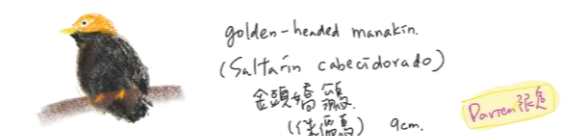 golden-headed manakin.
(Saltarín cabecidorado)
金頭嬌鶲
9cm.
Darren張